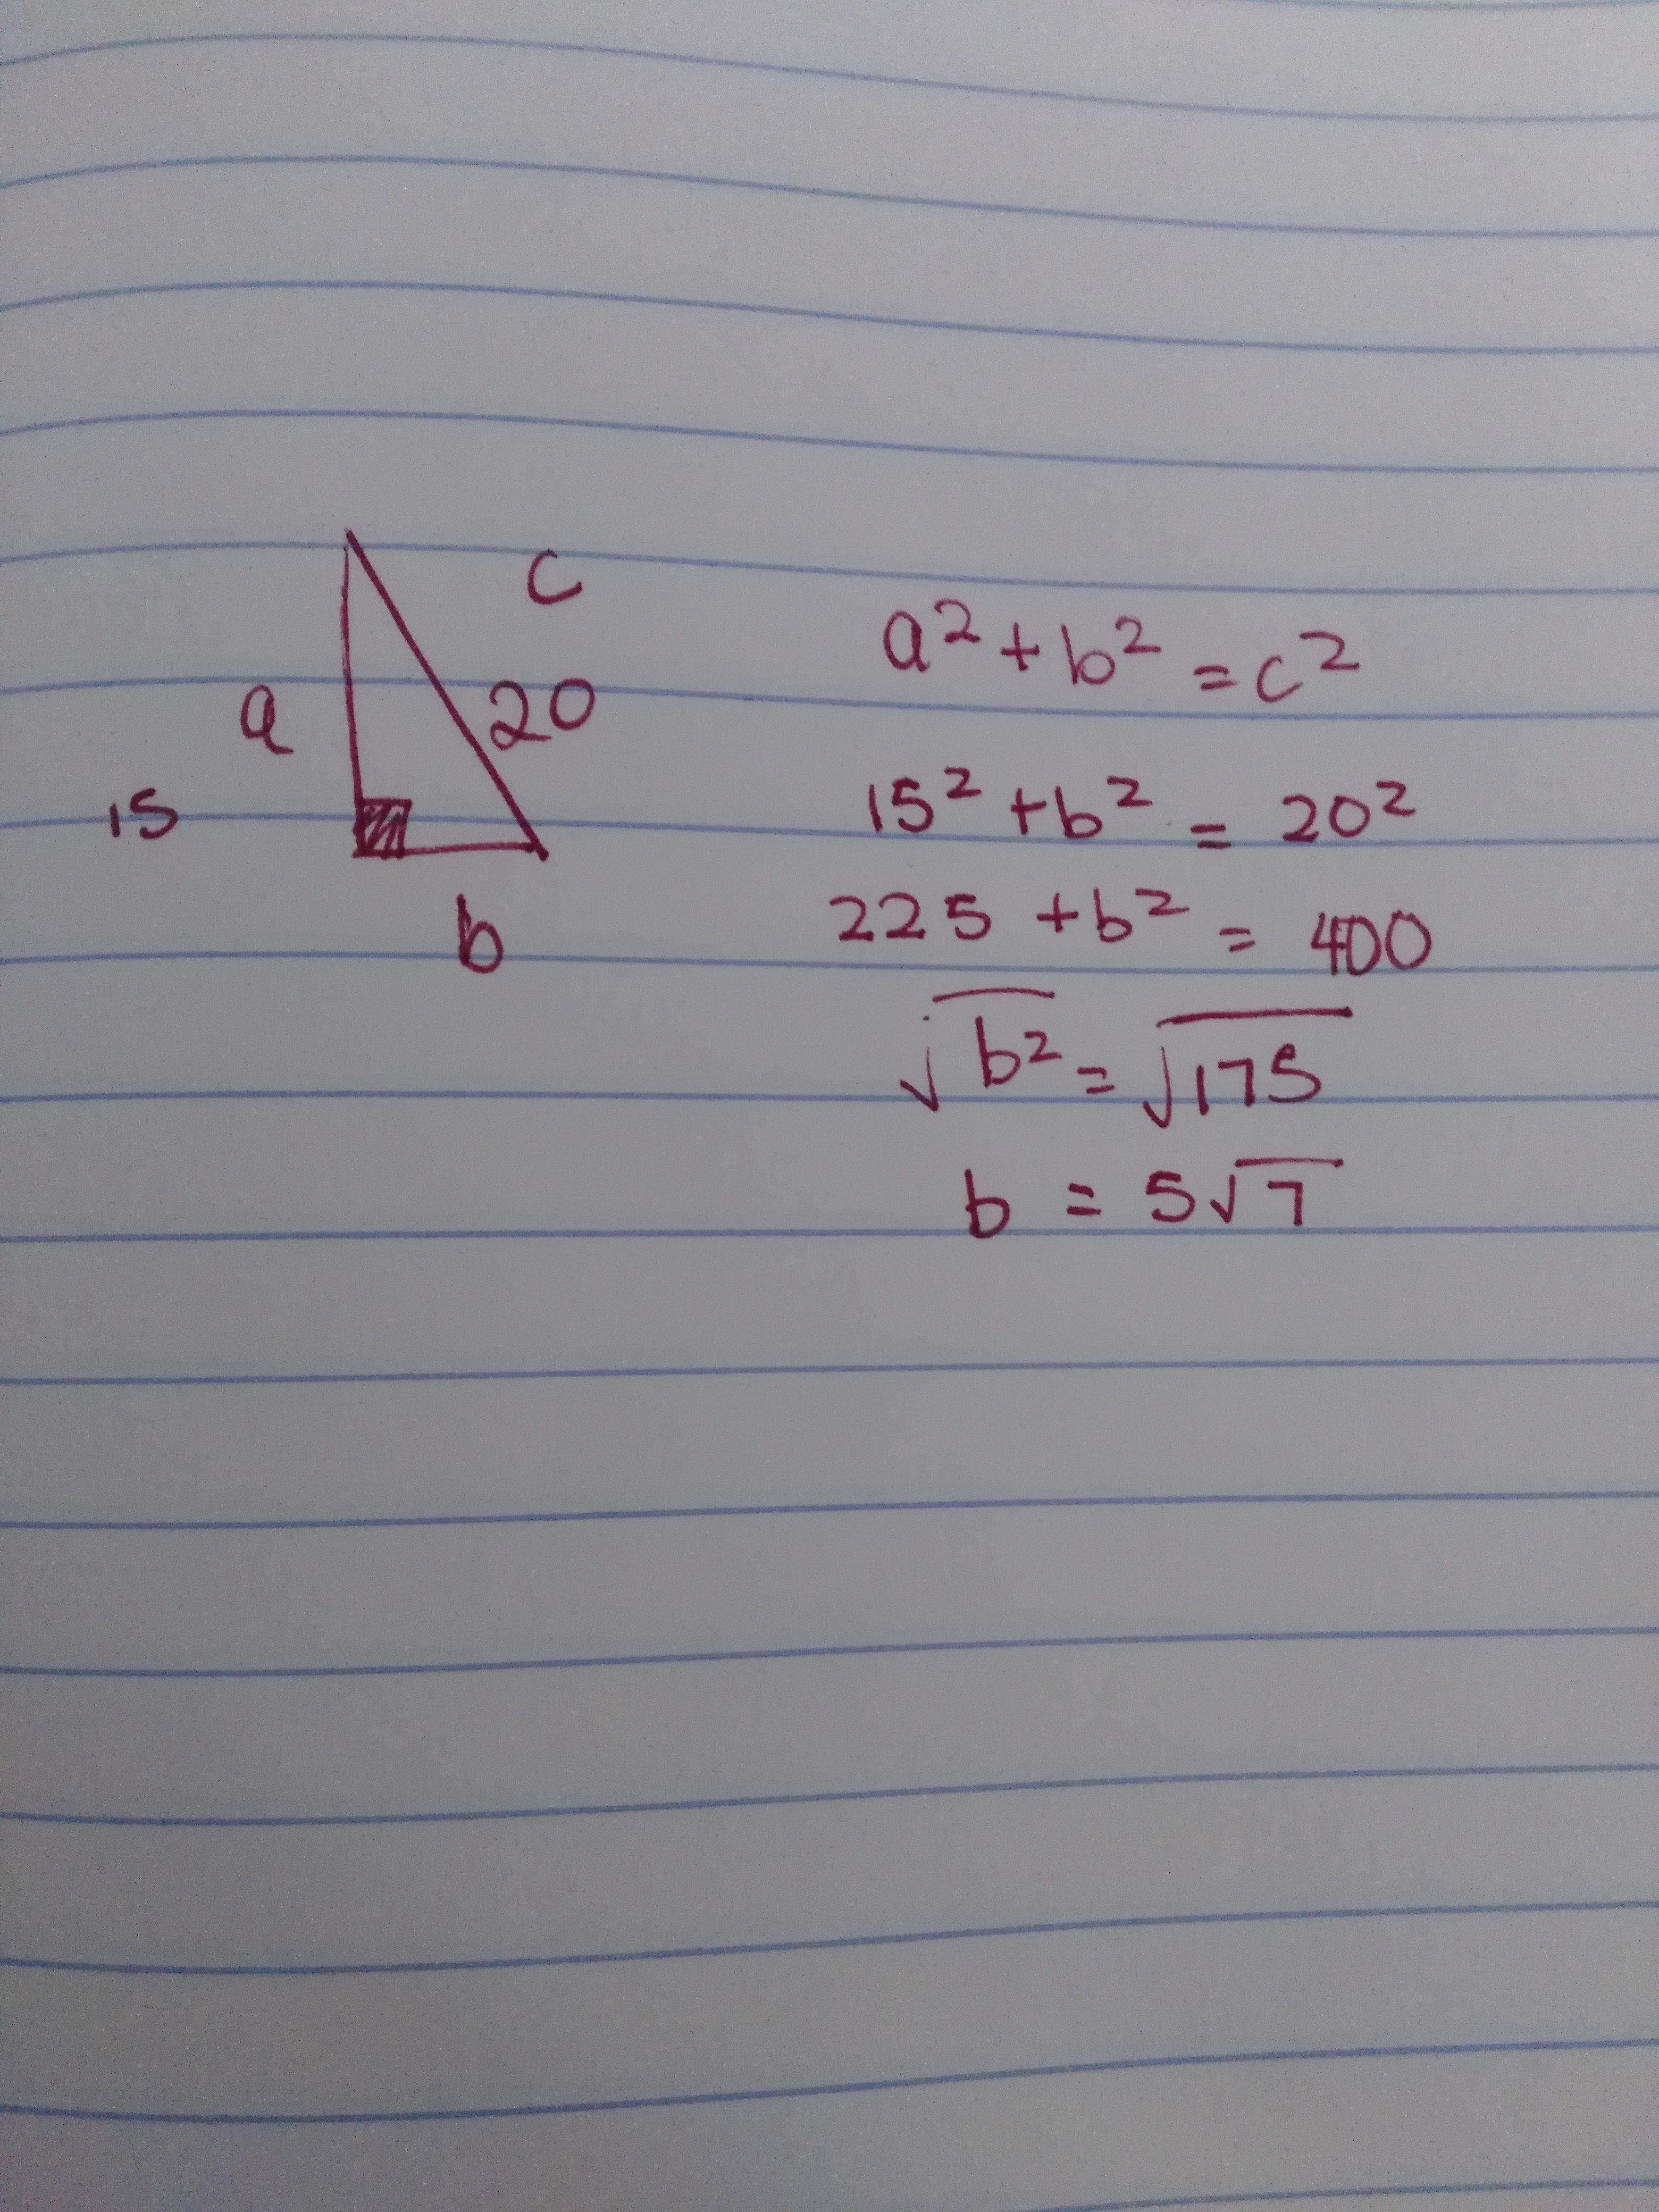 c
a
20
15
b
a² + b² = c²
15² + b² = 20²
225 + b² = 400
√b² = √175
b = 5√7